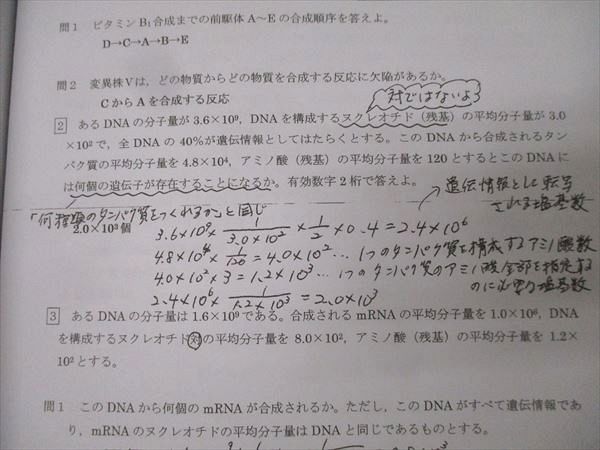 問1 ビタミンB₁合成までの前駆体A～Eの合成順序を答えよ。
D→C→A→B→E
問2 変異株Vは，どの物質からどの物質を合成する反応に欠陥があるか。
CからAを合成する反応
対ではないよ
2 あるDNAの分子量が3.6×10⁹，DNAを構成するヌクレオチド（残基）の平均分子量が3.0
×10²で，全DNAの40%が遺伝情報としてはたらくとする。このDNAから合成されるタン
パク質の平均分子量を4.8×10⁴，アミノ酸（残基）の平均分子量を120とするとこのDNAに
は何個の遺伝子が存在することになるか。有効数字2桁で答えよ。
遺伝情報として転写
される塩基数
「何種類のタンパク質をつくれるか」と同じ
2.0×10³個
3.6×10⁹×1/3.0×10²×1/2×0.4=2.4×10⁶
4.8×10⁴×1/120=4.0×10²…1つのタンパク質を構成するアミノ酸数
4.0×10²×3=1.2×10³…1つのタンパク質のアミノ酸全部を指定する
のに必要な塩基数
2.4×10⁶×1/1.2×10³=2.0×10³
3 あるDNAの分子量は1.6×10⁹である。合成されるmRNAの平均分子量を1.0×10⁶，DNA
を構成するヌクレオチド対の平均分子量を8.0×10²，アミノ酸（残基）の平均分子量を1.2×
10²とする。
問1 このDNAから何個のmRNAが合成されるか。ただし，このDNAがすべて遺伝情報であ
り，mRNAのヌクレオチドの平均分子量はDNAと同じであるものとする。